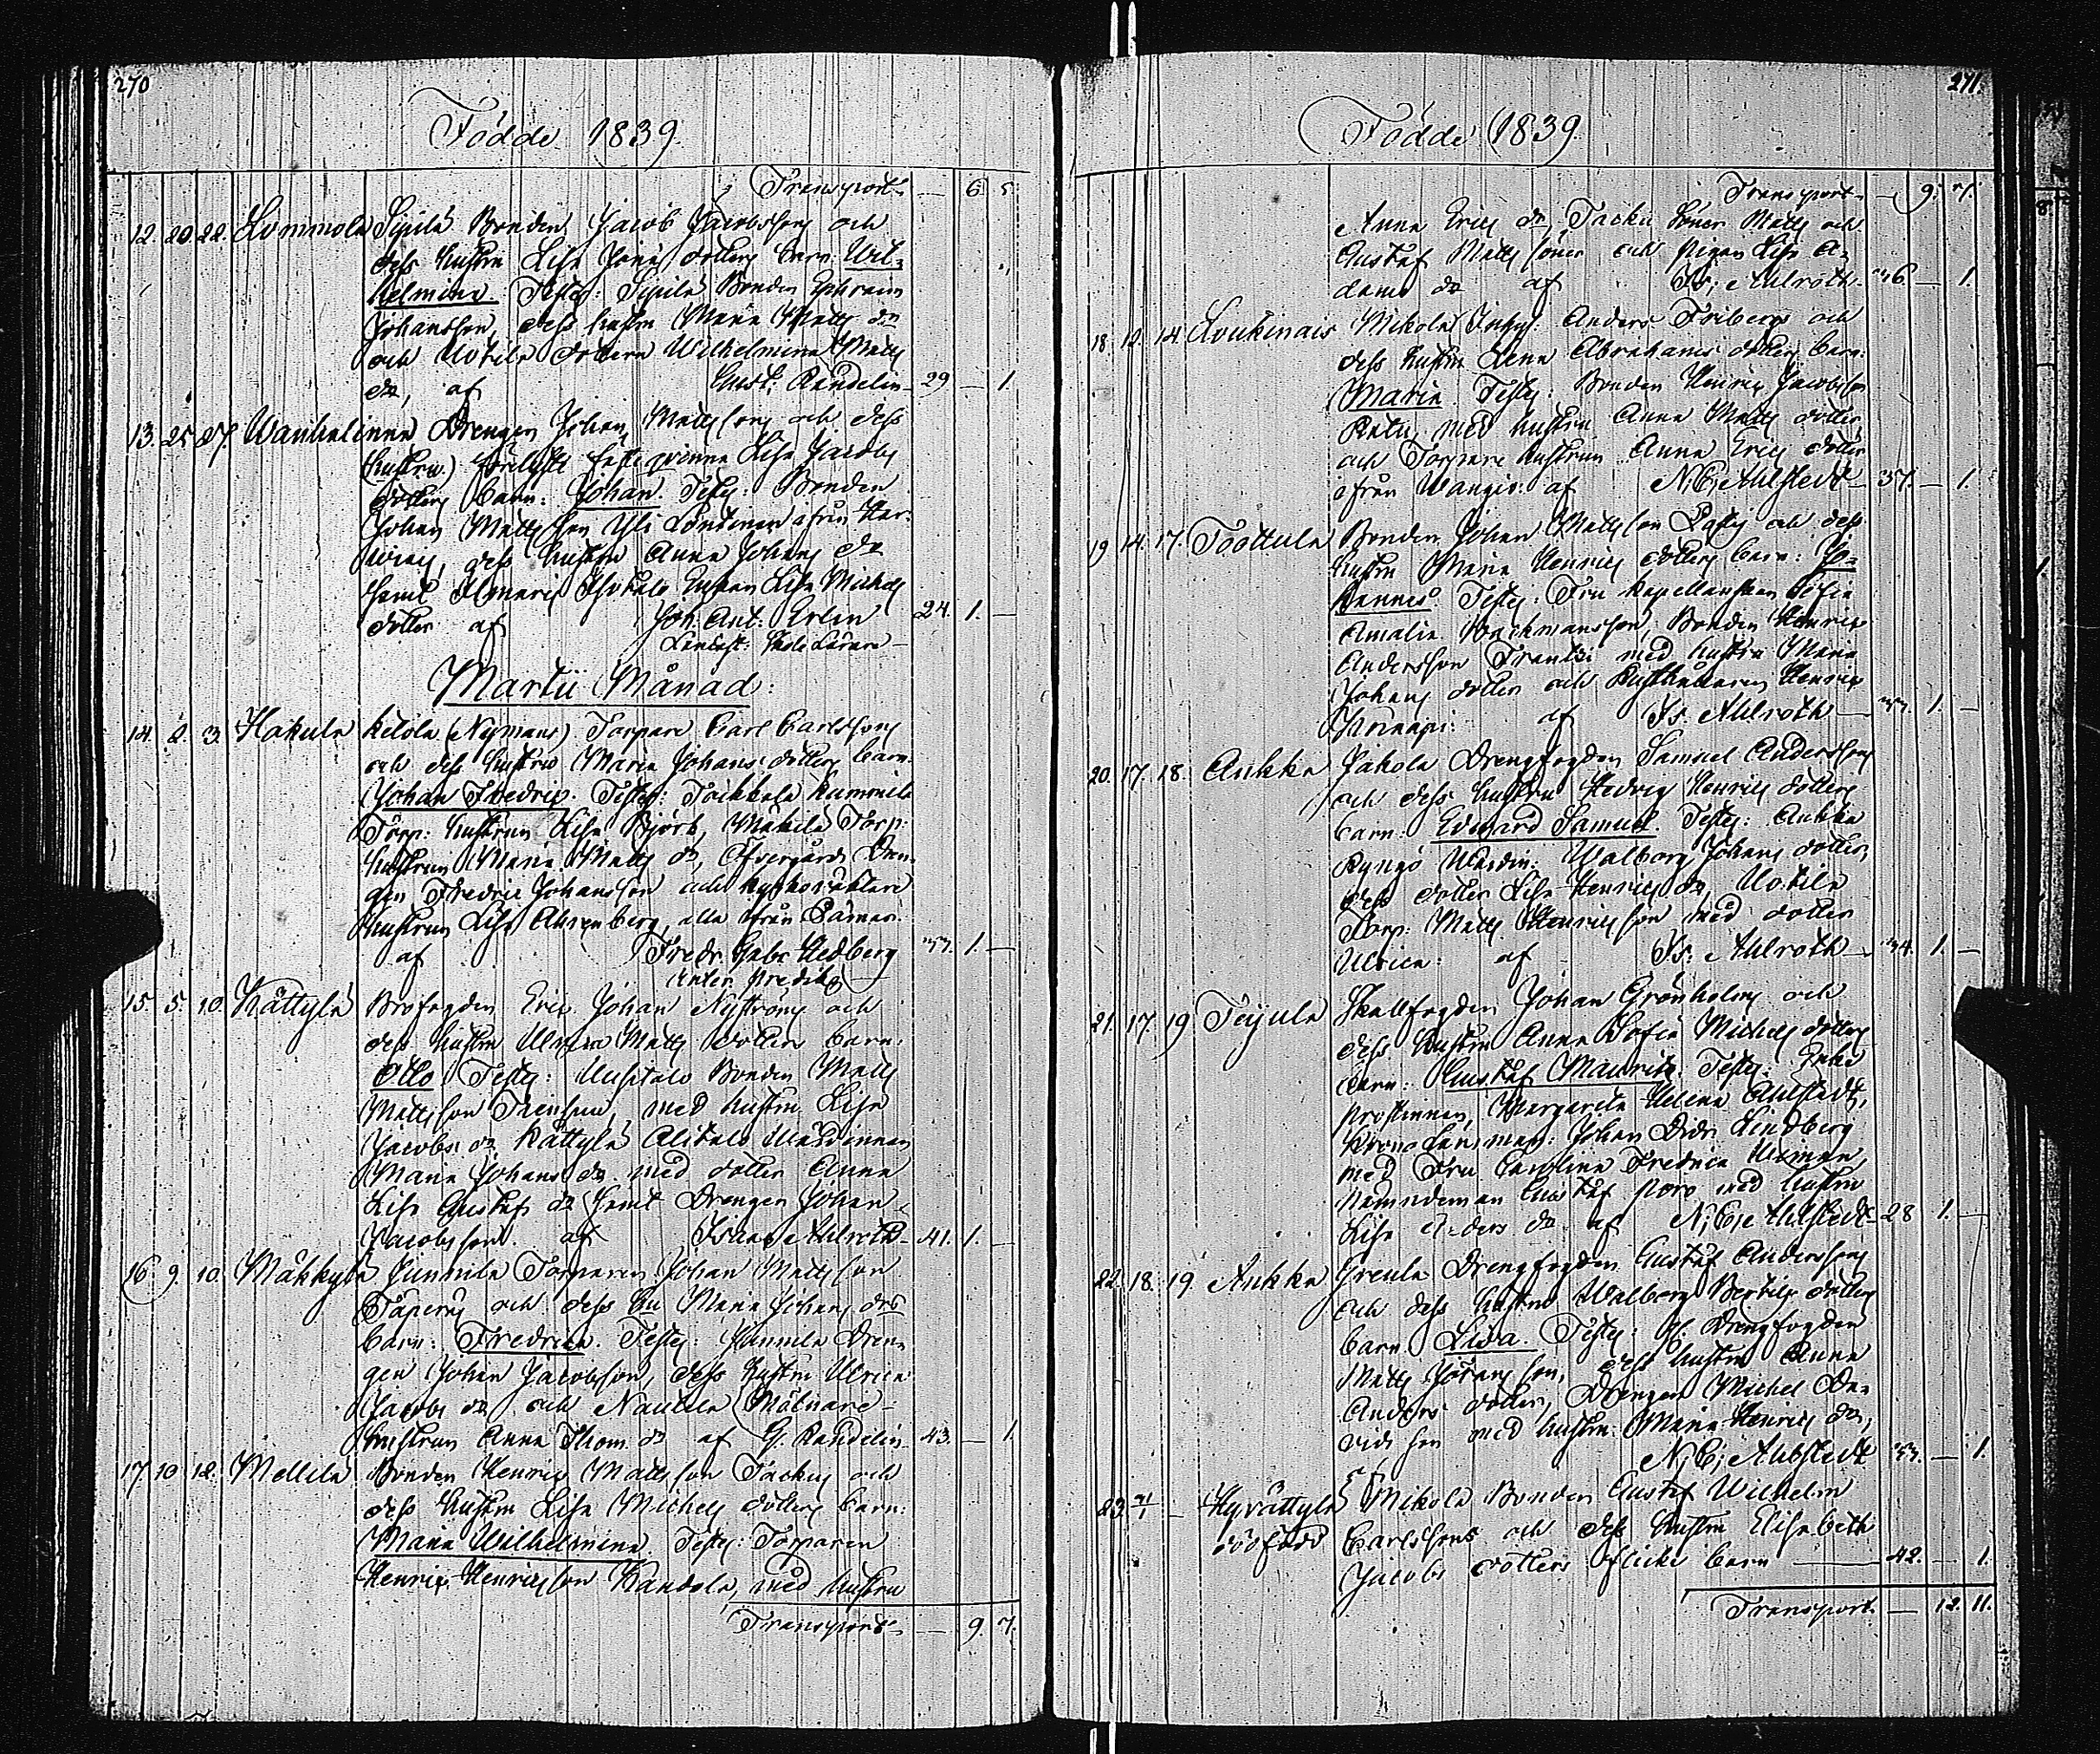 270
Födde 1839.
Transport — 6. 5.
12. 20. 22. Lommola Sipilä Bonden Jacob Jacobsson och
dess hustru Lisa Johans dotters barn: Wil-
helmina. Testes: Sipilä Bonden Ephraim
Johansson, dess hustru Maria Matts dr
och Uotila dottern Wilhelmina Matts
dr, af Gust: Randelin 29 — 1.
13. 25. 27. Wanhalinna Drengen Johan Mattssons och dess
(hustru) Lisa Jacobs
dotters barn: Johan. Testes: Bonden
Johan Mattsson Yli ifrån
dess hustru Anna Johans dr
samt hustrun Lisa Michels
dotter af Joh: Ant: Erlin 24. 1. —
Martii Månad:
14. 2. 3. Hakula Ketola (Nymans) Torpare Carl Carlssons
och dess hustrus Maria Johans dotters barn:
Johan Fredric. Testes: Toikkala
Torp: hustrun Lisa Björk, Mäkilä Torp:
hustrun Maria Matts dr, Öfvergårds Dren-
gen Fredric Johansson och
hustrun Lisa Ahrenberg, alla ifrån Pämar.
af Fredr: Gabr: Hedberg 33. 1. —
15. 5. 10. Kättylä Brofogden Eric Johan Nyströms och
dess hustru Ulrica Matts dotters barn:
Otto. Testes: Uusitalo Bonden Matts
Mattsson med hustru Lisa
Jacobs dr, Kättylä Alitalo Wärdinnan
Maria Johans dr med dotter Anna
Lisa Gustafs dr samt Drengen Johan
Jacobsson. af Isaac Ahlroth 41. 1. —
16. 9. 10. Mäkkylä Junnila Torparen Johan Mattsson
och dess hu Maria Johans drs
barn: Fredrica. Testes: Junnila Dren-
gen Johan Jacobsson, dess hustru Ulrica
Jacobs dr och Nautela Mölnare-
hustrun Anna Thom. dr af G. Randelin 43. — 1.
17. 10. 12. Mellilä Bonden Henric Mattsson Tackus och
dess hustru Lisa Michels dotters barn:
Maria Wilhelmina. Testes: Torparen
Henric Henricsson Kandola, med hustru
Transport — 9. 7.
271.
Födde 1839.
Transport — 9. 7.
Anna Erics dr, Tacku Söner Matts och
Gustaf Matts söner och pigan Lisa A-
dams dr af Is: Ahlroth. 36. — 1.
18. 12. 14. Loukinais Mikola Inhys: Anders Fribergs och
dess hustru Lena Abrahams dotters barn:
Maria. Testes: Bonden Henric Jacobsson
med hustru Anna Matts dotter
och Torpare hustrun Anna Erics dotter
ifrån Wangio: af N: E: Ahlstedt 37. — 1.
19. 14. 17. Toottula Bonden Johan Mattsson och dess
hustru Maria Henrics dotters barn: Jo-
hannes. Testes: Fru Kapellanskan Sofia
Amalia Backmansson, Bonden Henric
Andersson Frantsi med hustru Maria
Johans dotter och Rusthållaren Henric
af Is. Ahlroth 33. 1. —
20. 17. 18. Aukka Jakola Drengfogden Samuel Anderssons
och dess hustru Hedvig Henrics dotters
barn: Edvard Samuel. Testes: Aukka
Ryngö Wärdin: Walborg Johans dotter,
dess dotter Lisa Henrics dr, Uotila
Torp: Matts Henricsson med dotter
Ulrica: af Is: Ahlroth 34. 1. —
21. 17. 19. Teijula Skallfogden Johan Grönholms och
dess hustru Anna Sofia Michels dotters
barn: Gustaf Maurits. Testes: Enke
Prostinnan, Margareta Helena Ahlstedt,
Krono Länsman: Johan Didr. Lindberg
med Fru Carolina Fredrica Uleman,
Nämndeman Gustaf med hustru
Lisa Anders dr af N: E: Ahlstedt 28 1. —
22. 18. 19. Aukka Greula Drengfogden Gustaf Anderssons
och dess hustrus Walborg Bertils dotters
barn Lisa. Testes: Drengfogden
Matts Göransson, dess hustru Anna
Anders dotter, Drengen Michel Da-
vidsson med hustru Maria Henrics dr,
N: E: Ahlstedt 33. — 1.
23. — Hyvättylä Mikola Bonden Gustaf Wilhelm
dödfödd Carlssons och dess hustru Elisabeth
Jacobs dotters flicke barn 42. — 1.
Transport — 12. 11.